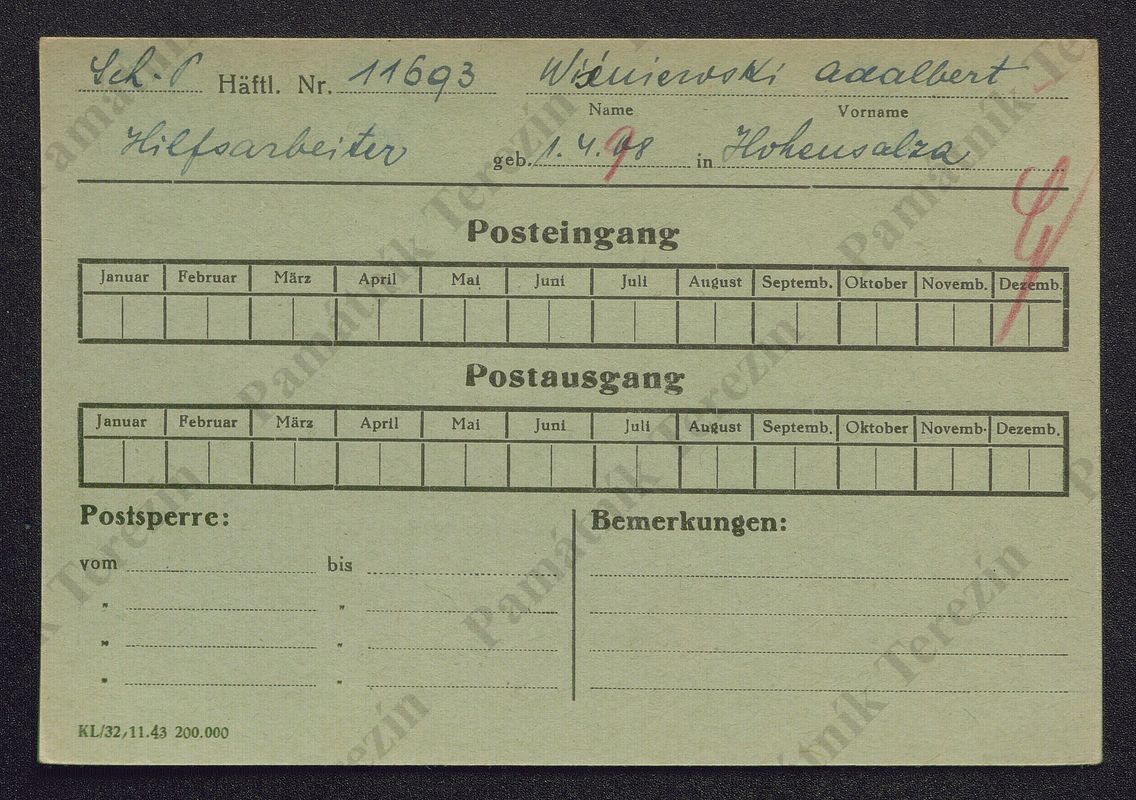 Sch.-P Häftl. Nr. 11693 Wiśniewski Adalbert
Name Vorname
Hilfsarbeiter geb. 1. 4. 08 in Hohensalza
9
Posteingang
Januar Februar März April Mai Juni Juli August Septemb. Oktober Novemb. Dezemb.
Postausgang
Januar Februar März April Mai Juni Juli August Septemb. Oktober Novemb. Dezemb.
Postsperre: Bemerkungen:
vom bis
" "
" "
" "
KL/32, 11.43 200.000
Památník Terezín